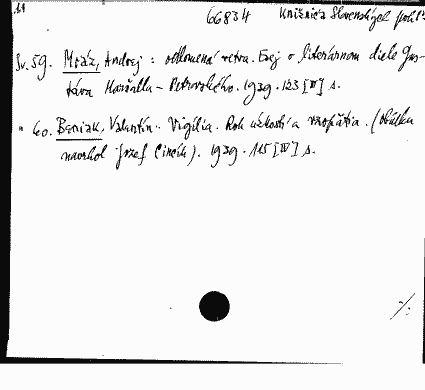 66834 Knižnica Slovenských pohľ-
Sv. 59. Mráz, Andrej: odlomená vetva. Esej o literárnom diele Gus-
táva Maršalla-Petrovského. 1939. 123 [IV] s.
" 60. Beniak, Valentín: Vigília. Rok úzkosti a vzopätia. (Obálku
navrhol Jozef Cincík). 1939. 115 [IV] s.